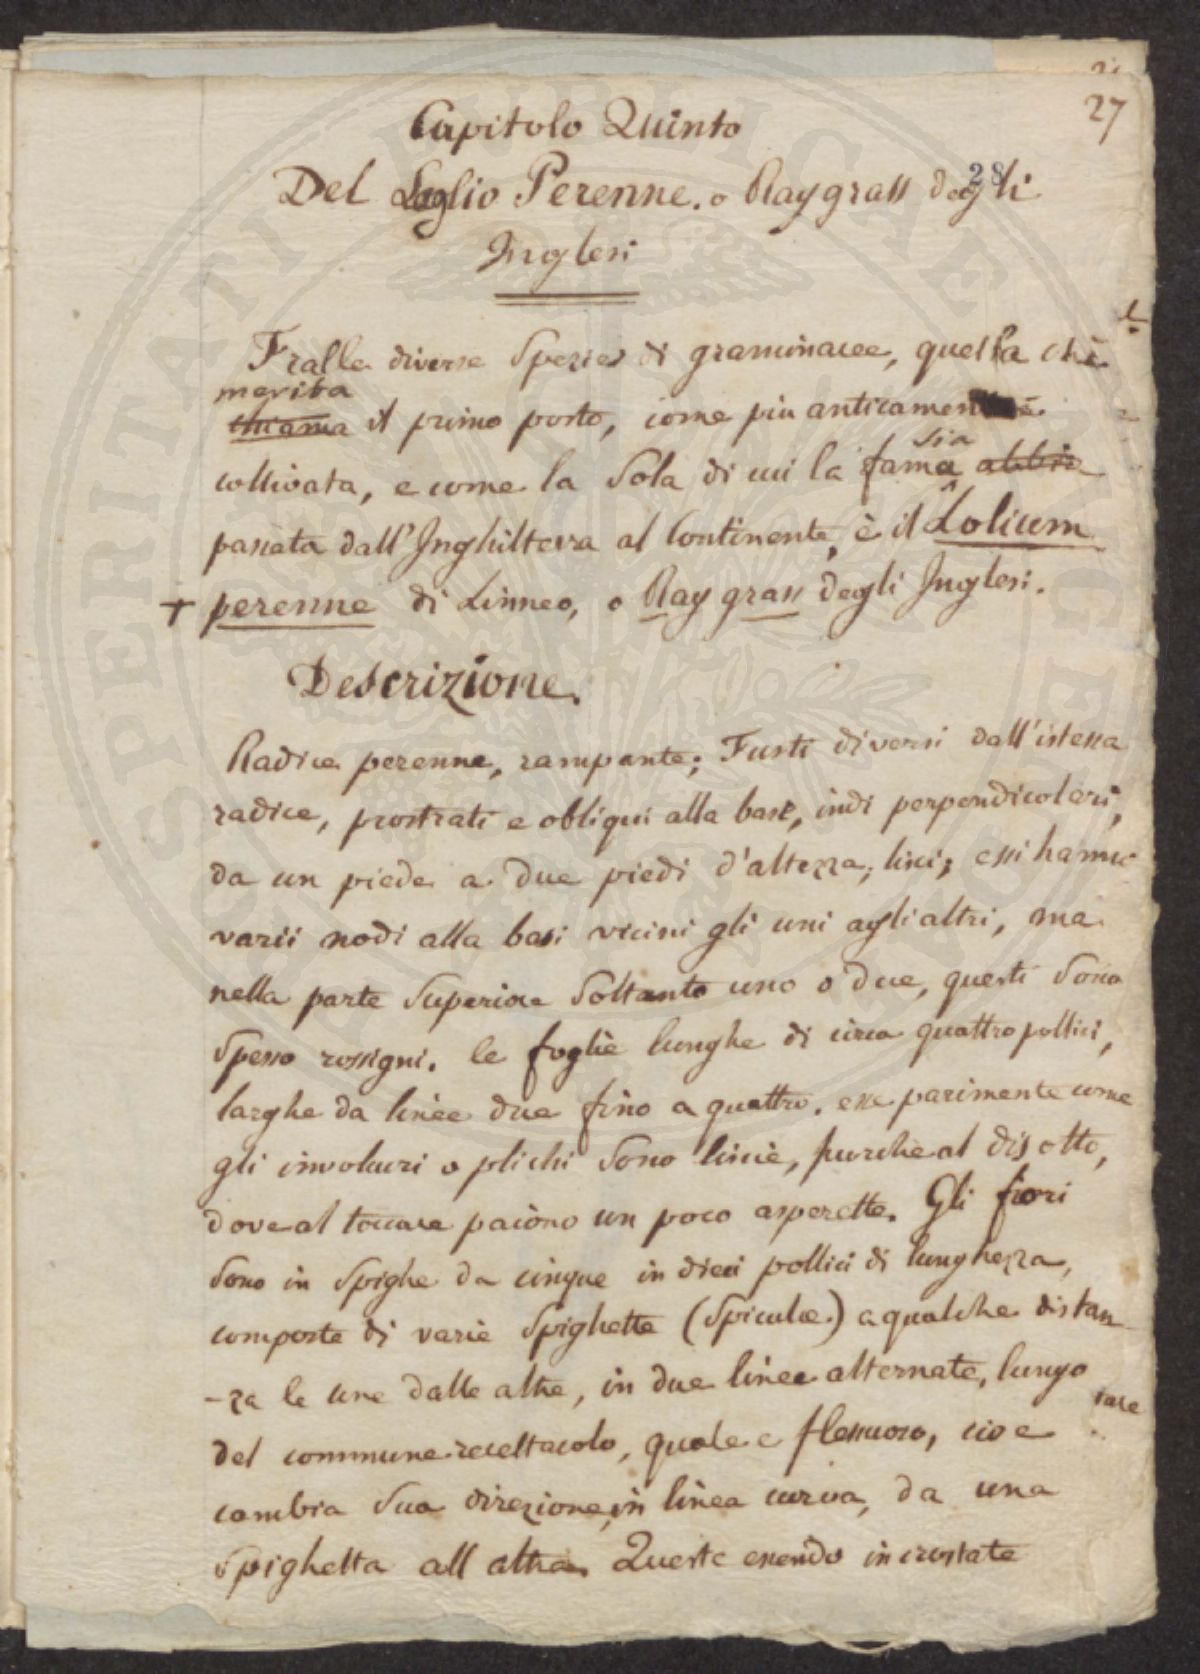 27
Capitolo Quinto
28
Del Loglio Perenne. o Raygrass degli
Inglesi
Fralle diverse Spezies di graminacee, quella che
merita
chiama il primo posto, come piu anticamente
sia
coltivata, e come la Sola di cui la fama abbia
passata dall'Inghilterra al Continente, è il Lolium
+ perenne di Linneo, o Ray grass degli Inglesi.
Descrizione.
Radice perenne, rampante; Fusti diversi dall'istessa
radice, prostrati e obliqui alla base, indi perpendicolari,
da un piede a due piedi d'altezza; lisci; essi hanno
varii nodi alla basi vicini gli uni agli altri, ma
nella parte Superiore Soltanto uno o due, questi Sono
Spesso rossigni. le foglie lunghe di circa quattro pollici,
larghe da linee due fino a quattro. esse parimente come
gli involucri o plichi Sono liscie, purche al disotto,
dove al toccare paiono un poco asperette. Gli fiori
Sono in Spighe da cinque in dieci pollici di lunghezza,
composte di varie Spighette (Spiculæ) a qualche distan
-za le une dalle altre, in due linee alternate, lungo
del commune recettacolo, quale e flessuoso, cioe
cambia Sua direzione, in linea curva, da una
Spighetta all altra. Queste essendo incrostate